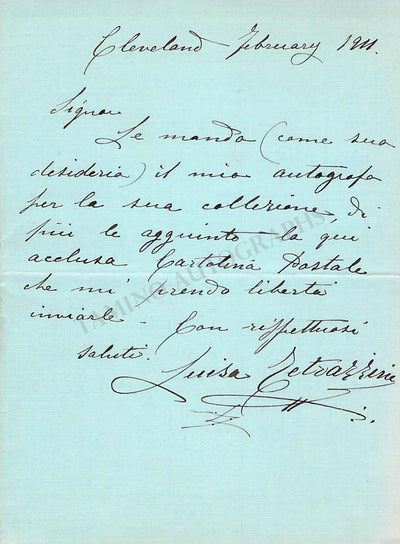 Cleveland February 1911.
Signor
Le mando (come suo
desiderio) il mio autografo
per la sua collezione, di
più le agguinto la qui
acclusa Cartolina Postale
che mi prendo libertà
inviarle - Con rispettuosi
saluti.
Luisa Tetrazzini
TAMINO AUTOGRAPHS